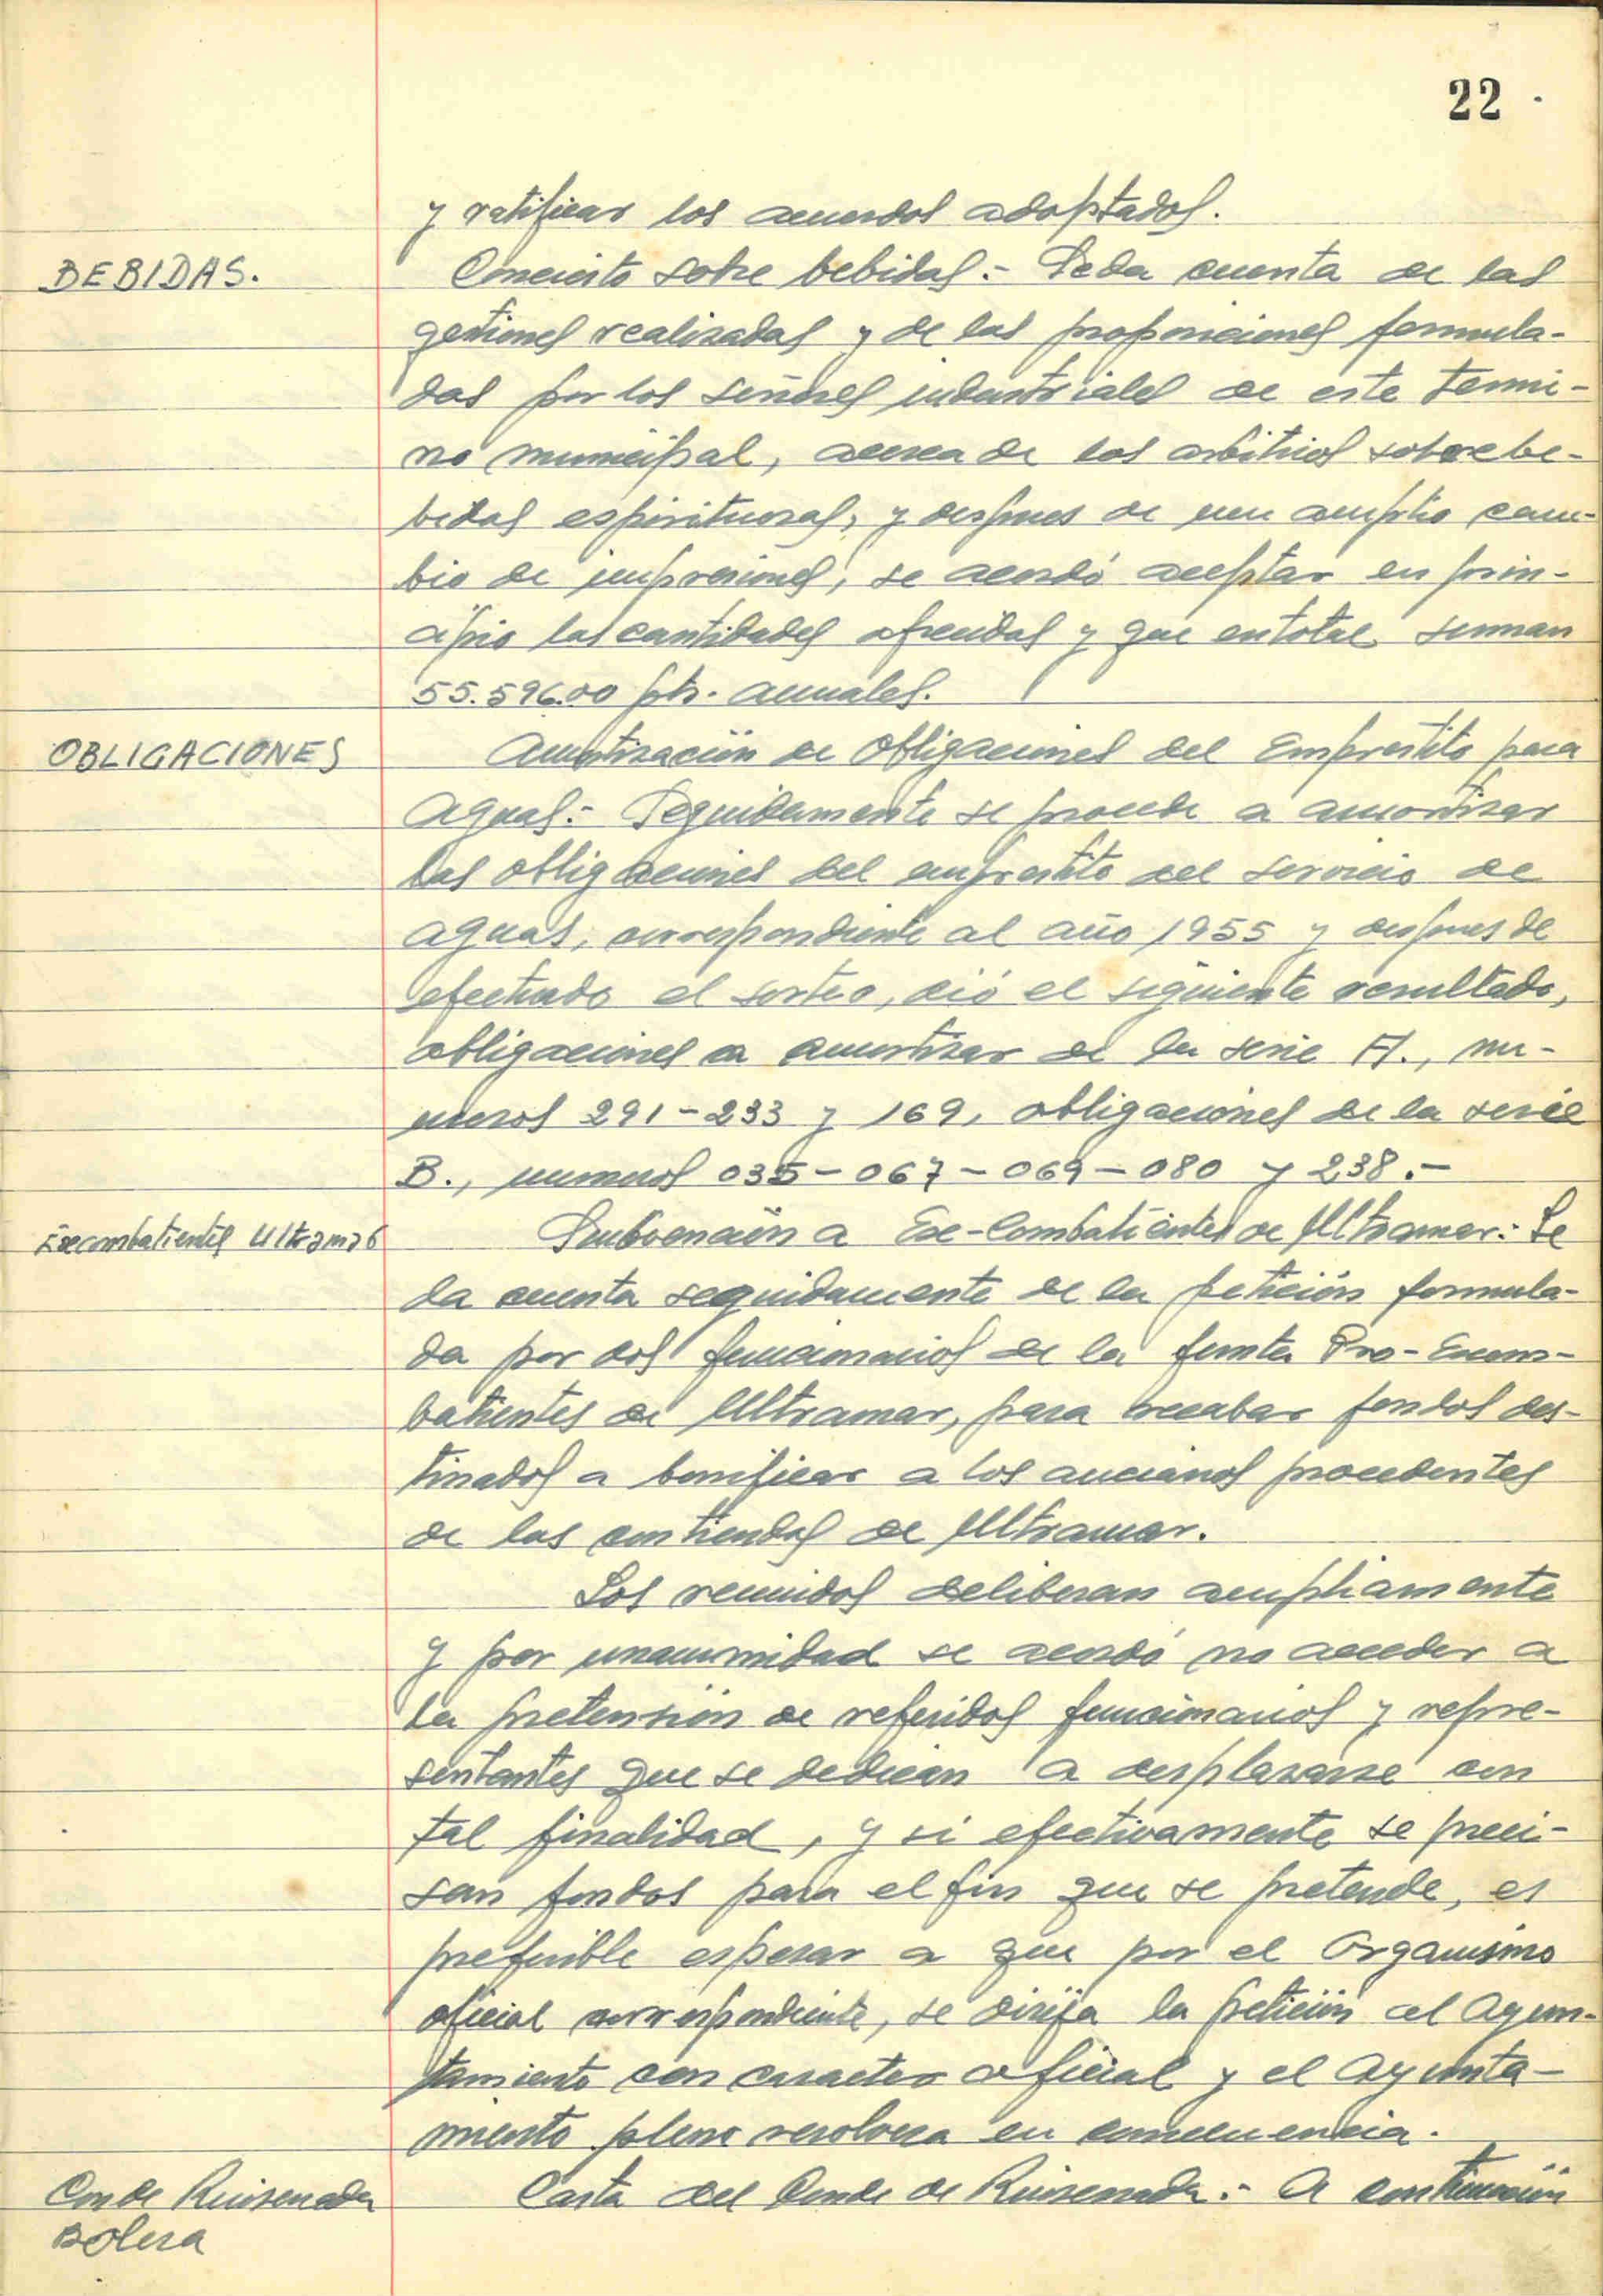 22
y ratificar los acuerdos adoptados.
BEBIDAS.
Concierto sobre bebidas.- Se da cuenta de las
gestiones realizadas y de las proposiciones formula-
das por los señores industriales de este termi-
no municipal, acerca de los arbitrios sobre be-
bidas espirituosas, y despues de un amplio cam-
bio de impresiones, se acordó aceptar en prin-
cipio las cantidades ofrecidas y que en total suman
55.596.00 pts. anuales.
OBLIGACIONES
Amortización de Obligaciones del Emprestito para
Aguas.- Seguidamente se procede a amortizar
las obligaciones del emprestito del servicio de
aguas, correspondiente al año 1955 y despues de
efectuado el sorteo, dió el siguiente resultado,
obligaciones a amortizar de la serie A., nu-
meros 291-233 y 169, obligaciones de la serie
B., numeros 035-067-069-080 y 238.-
Excombatientes Ultramar
Subvención a Ex-Combatientes de Ultramar.- Se
da cuenta seguidamente de la petición formula-
da por dos funcionarios de la Junta Pro-Excom-
batientes de Ultramar, para recabar fondos des-
tinados a bonificar a los ancianos procedentes
de las contiendas de Ultramar.
Los reunidos deliberan ampliamente
y por unanimidad se acordó no acceder a
la pretensión de referidos funcionarios y repre-
sentantes que se dedican a desplazarse con
tal finalidad, y si efectivamente se preci-
san fondos para el fin que se pretende, es
preferible esperar a que por el Organismo
oficial correspondiente, se dirija la petición al Ayun-
tamiento con caracter oficial y el Ayunta-
miento pleno resolvera en consecuencia.
Conde Ruisenada
Bolera
Carta del Conde de Ruisenada.- A continuación